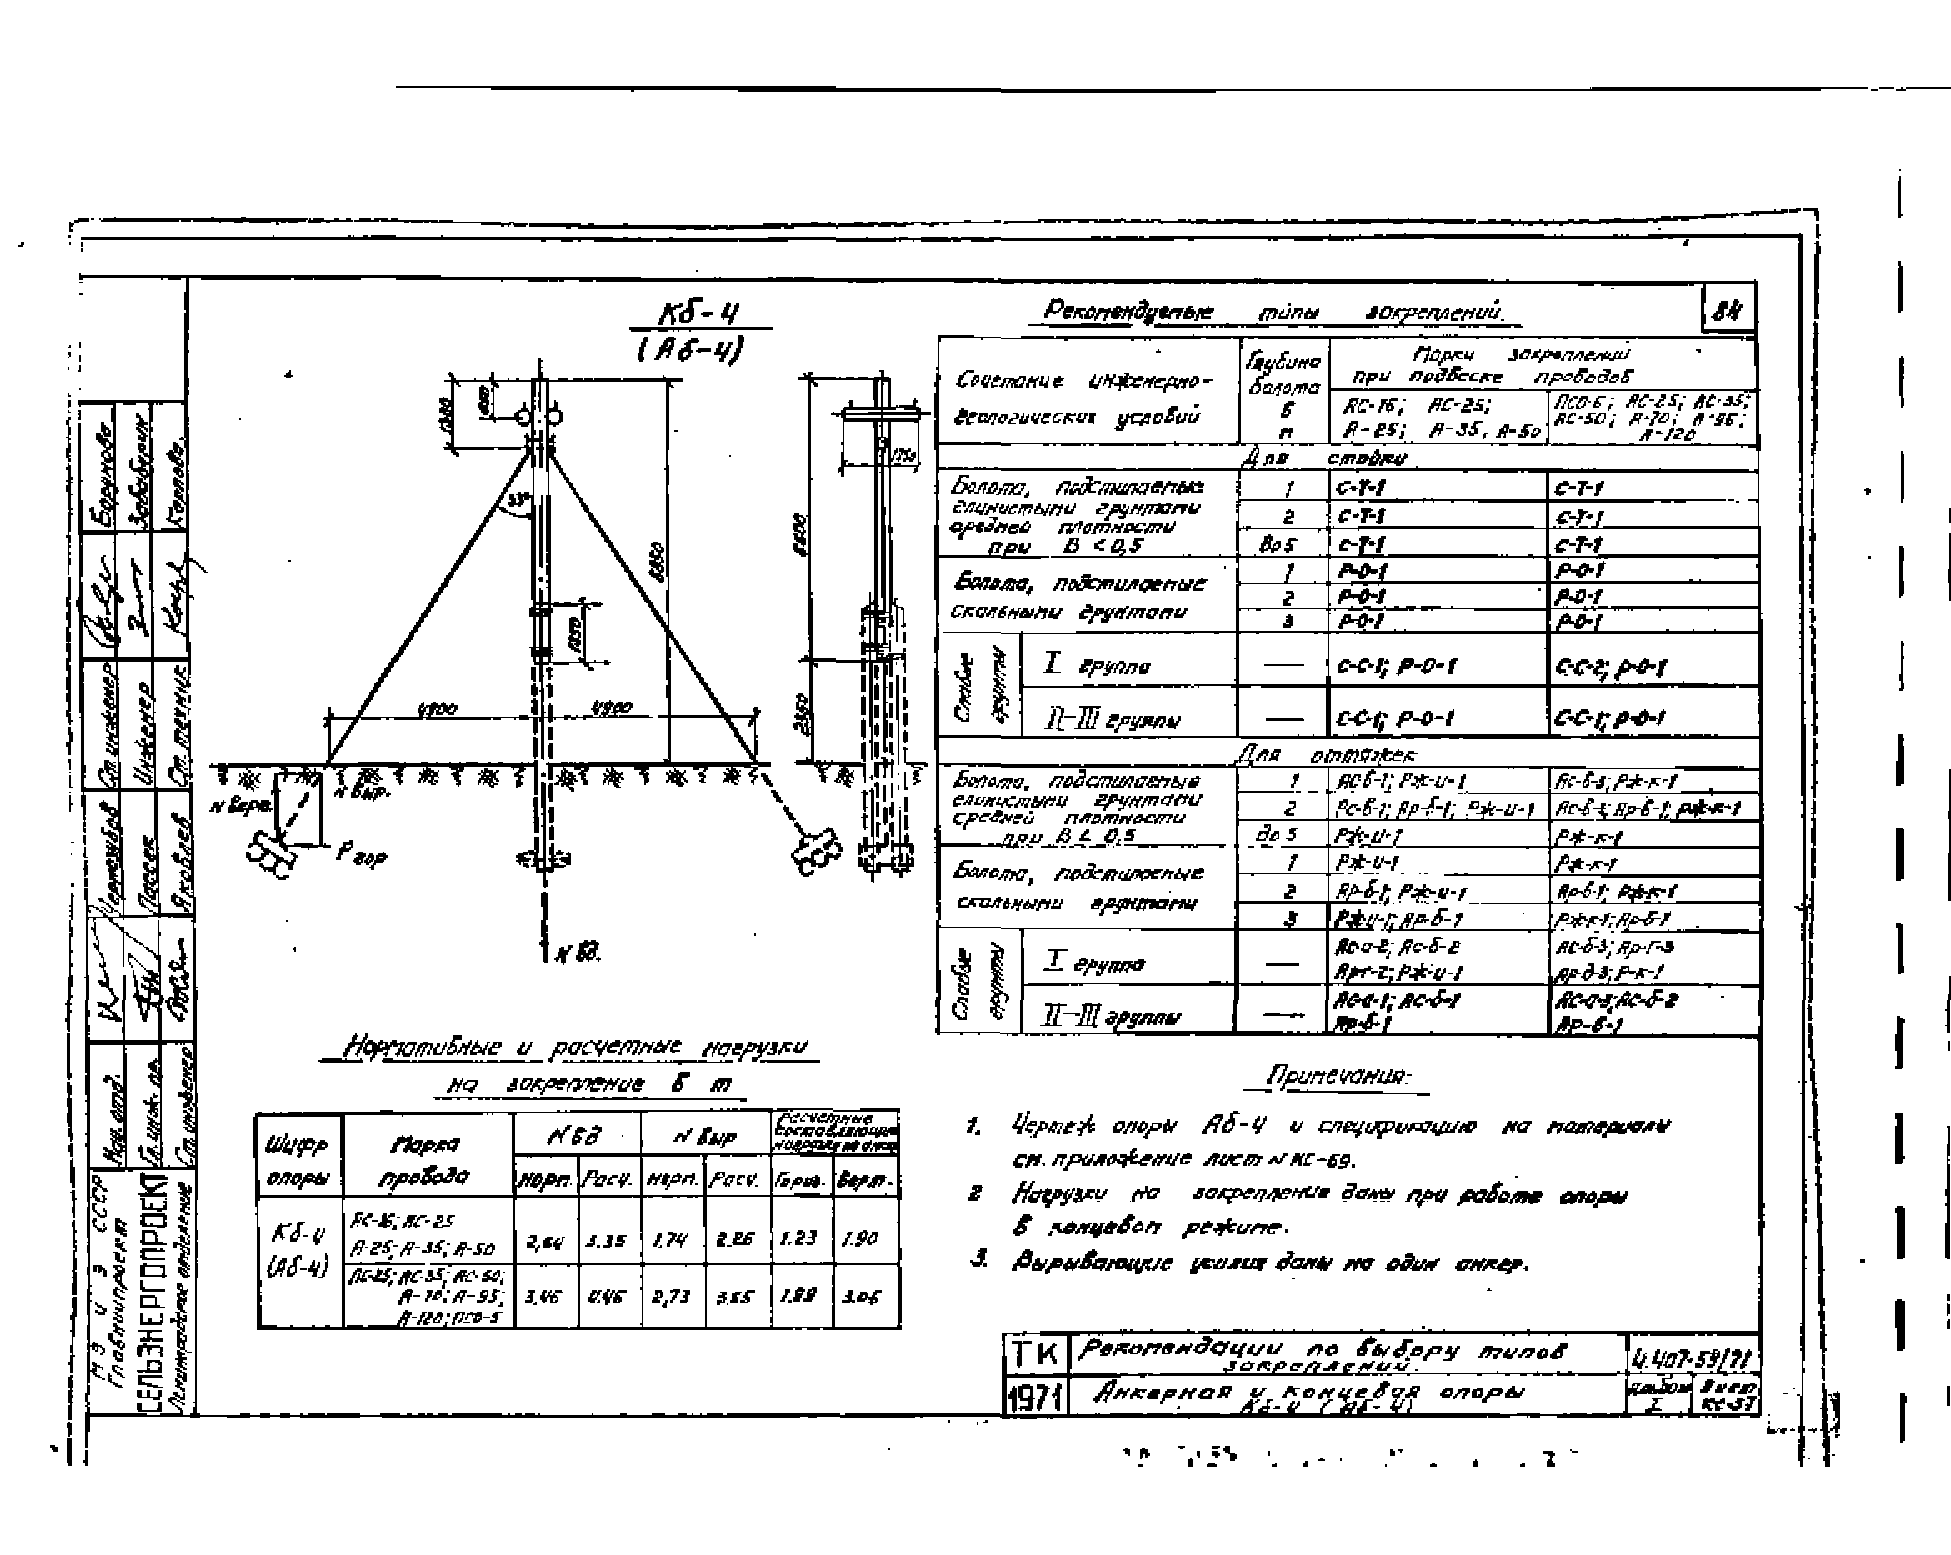 84
Кб-4
(Аб-4)
1300
6850
1050
4900 4900
N верт.
N выр.
P гор
N вд.
6600
2350
1750
Рекомендуемые типы закреплений.
Сочетание инженерно-
геологических условий
Глубина
болота
в
м
Марки закреплений
при подвеске проводов
АС-16; АС-25;
А-25; А-35, А-50
ПСО-5; АС-25; АС-35;
АС-50; А-70; А-95;
А-120
Для стойки
Болота, подстилаемые
глинистыми грунтами
средней плотности
при В < 0,5
1 С-Т-1 С-Т-1
2 С-Т-1 С-Т-1
до 5 С-Т-1 С-Т-1
Болота, подстилаемые
скальными грунтами
1 Р-О-1 Р-О-1
2 Р-О-1 Р-О-1
3 Р-О-1 Р-О-1
Слабые
грунты
I группа — С-С-1; Р-О-1 С-С-2; Р-О-1
II-III группы — С-С-1; Р-О-1 С-С-1; Р-О-1
Для оттяжек
Болота, подстилаемые
глинистыми грунтами
средней плотности
при В < 0,5
1 АС-б-1; Рж-и-1 АС-б-3; Рж-к-1
2 Ар-б-1; Рж-и-1 Ар-б-1; Рж-к-1
до 5 Рж-и-1 Рж-к-1
Болота, подстилаемые
скальными грунтами
1 Рж-и-1 Рж-к-1
2 Ар-б-1; Рж-и-1 Ар-б-1; Рж-к-1
3 Рж-и-1; Ар-б-1 Рж-к-1; Ар-б-1
Слабые
грунты
I группа — АС-а-2; АС-б-2 АС-б-3; Ар-г-3
Арг-2; Рж-и-1 Ар-д-3; Р-к-1
II-III группы — АС-а-1; АС-б-1 АС-а-3; АС-б-2
Ар-б-1 Ар-в-1
Нормативные и расчетные нагрузки
на закрепление в т
Шифр
опоры
Марка
провода
N вд N выр
Расчетные
составляющие
Норм. Расч. Норм. Расч. Гориз. Верт.
Кб-4
(Аб-4)
АС-16; АС-25
А-25; А-35; А-50
2,64 3.35 1,74 2.26 1.23 1.90
АС-25; АС-35; АС-50;
А-70; А-95;
А-120; ПСО-5
3,46 4.46 2,73 3.65 1.98 3.06
Примечания:
1. Чертеж опоры Аб-4 и спецификацию на материалы
см. приложение лист N КС-69.
2 Нагрузки на закрепление даны при работе опоры
в концевом режиме.
3. Вырывающие усилия даны на один анкер.
ТК
1971
Рекомендации по выбору типов
закреплений.
Анкерная и концевая опоры
Кб-4 (Аб-4)
4.407-59/71
Альбом
I
Лист
КС-37
МЭ и Э СССР
Главниипроект
СЕЛЬЭНЕРГОПРОЕКТ
Ленинградское отделение
Нач. отд.
Гл. инж. пр.
Ст. инженер
Яковлев
Ст. инженер
Инженер
Ст. техник
Карпова.